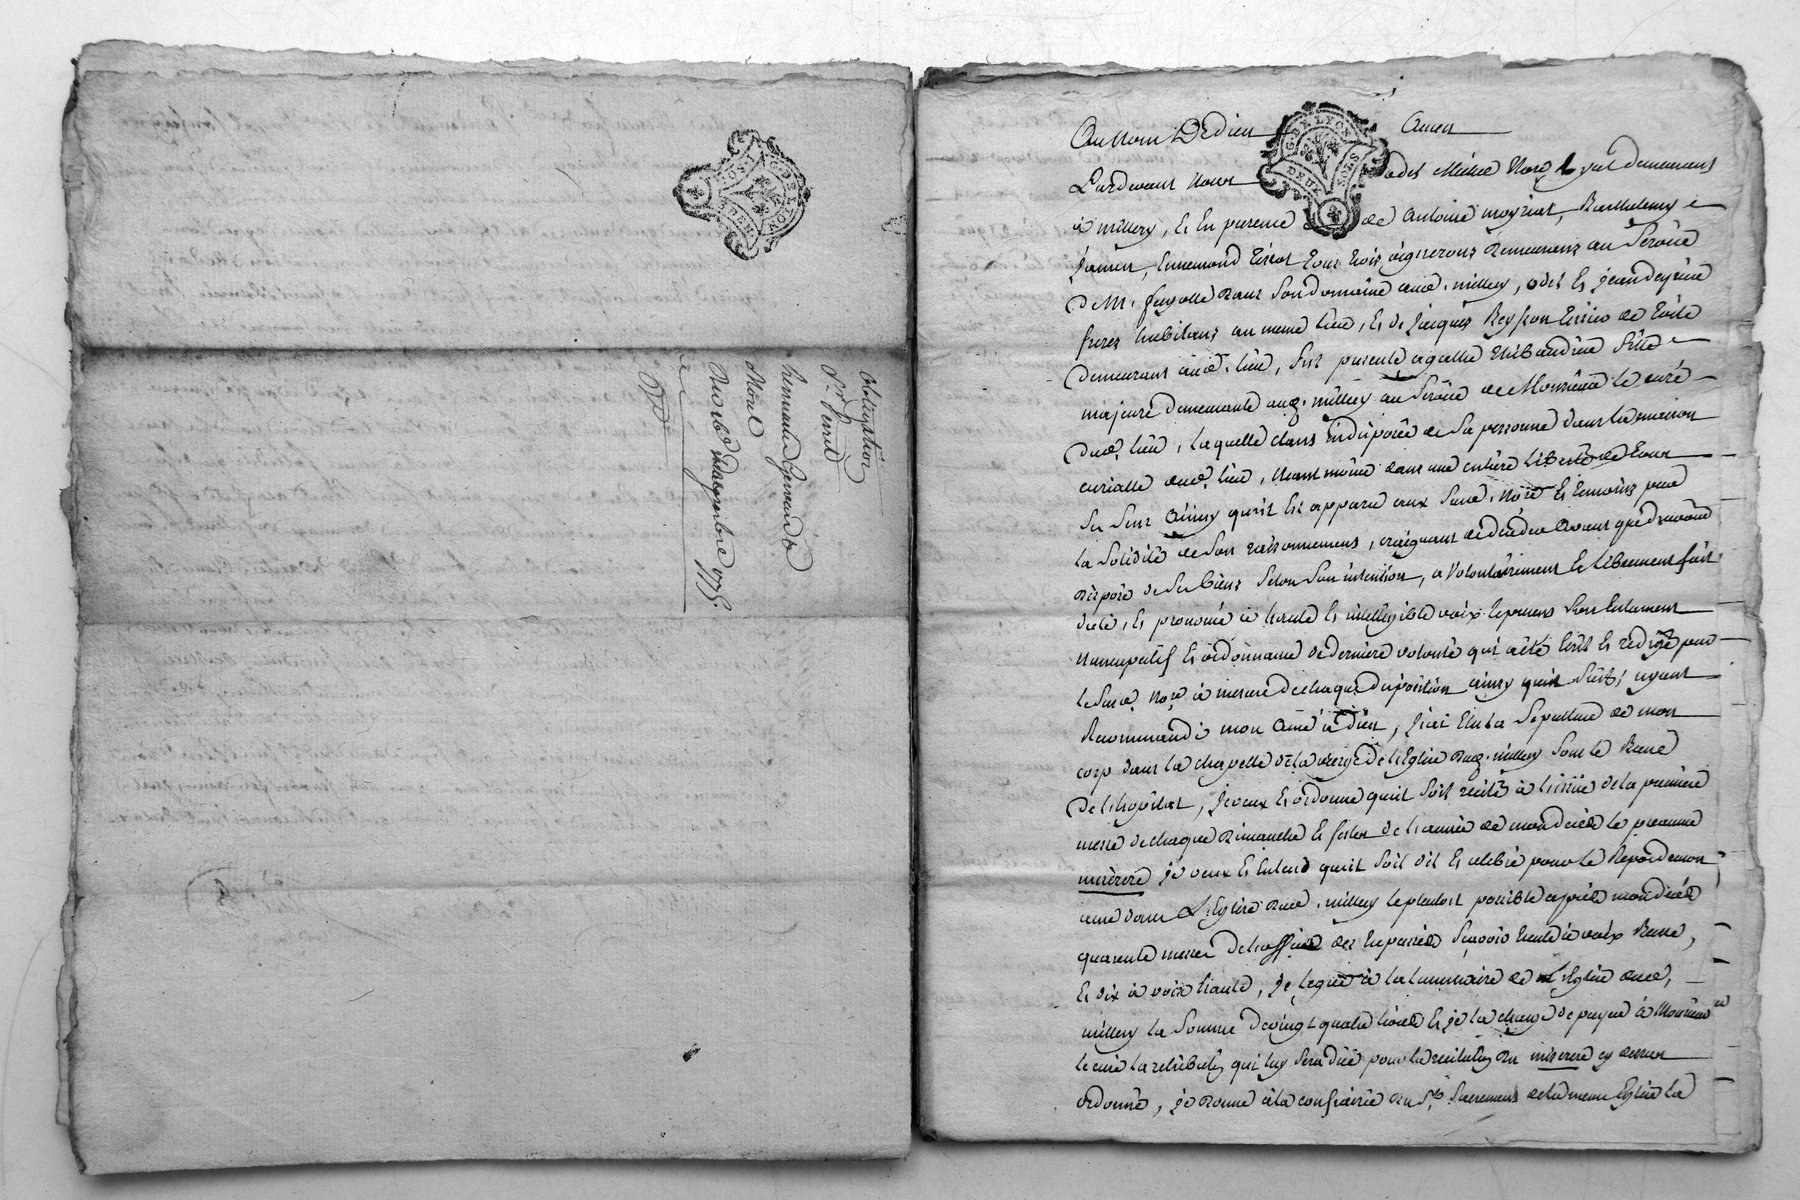 Obligation
Sr Veret
hersand Genevard
Mone
Du 16e 1775.
G. DE LYON
DEUX SOLS
Au Nom De Dieu Amen
Pardevant Nous Odet Michel Nore Ryal demeurant
à millery, Et En presence de Antoine moyriat, Barthelemy
Jamen, Ennemond tous trois vignerons demeurans au Service
de Mr. fayolle dans Son domaine aud. millery, odet Et jean deyrieu
freres habitans au meme lieu, Et de Jacques Reysson tissier de toile
demeurant aud. lieu, fut presente agathe thibaudier fille
majeure demeurante aud. millery au Service de Monsieur le curé
dud. lieu, laquelle etant indisposée de Sa personne dans la maison
curialle dud. lieu, neant moins dans une entiere liberté de tous
Ses Sens Ainsy qu'il Est apparu aux Sund. Nore Et temoins par
la Solidité de Son raisonnement, craignant de decéder Avant que d'avoir
disposé de Ses biens Selon Son intention, a Volontairement Et librement fait
dicté, Et prononcé à haute Et intelligible voix le present Son testament
nuncupatif Et ordonnance de derniere volonté qui a été Ecrit Et redigé par
le Susd. Nore à mesure de chaque disposition ainsy quil Suit, ayant
Recommandé mon Ame à dieu, J'ai Elu la Sepulture de mon
corp dans la chapelle de la vierge de l'Eglise dud. millery Sous le Banc
de l'hopital, je veux Et ordonne quil Soit recité à l'issüe de la premiere
messe de chaque dimanche Et festes de l'année de mon decès le pseaume
miserere je veux Et Entend quil Soit dit Et celebré pour le Repos de mon
ame dans L'Eglise dud. millery le plustost possible après mon decès
quarente messes de l'office des trepassés Sçavoir trente à voix Basse,
Et dix à voix haute, je legue à la luminaire de L'Eglise dud.
millery la Somme de vingt quatre livres Et je la charge de payer à Monsieur
le curé la retribution qui luy Sera düe pour la recitation du miserere cy dessus
ordonné, je donne à la confrairie du St. Sacrement de la meme Eglise la